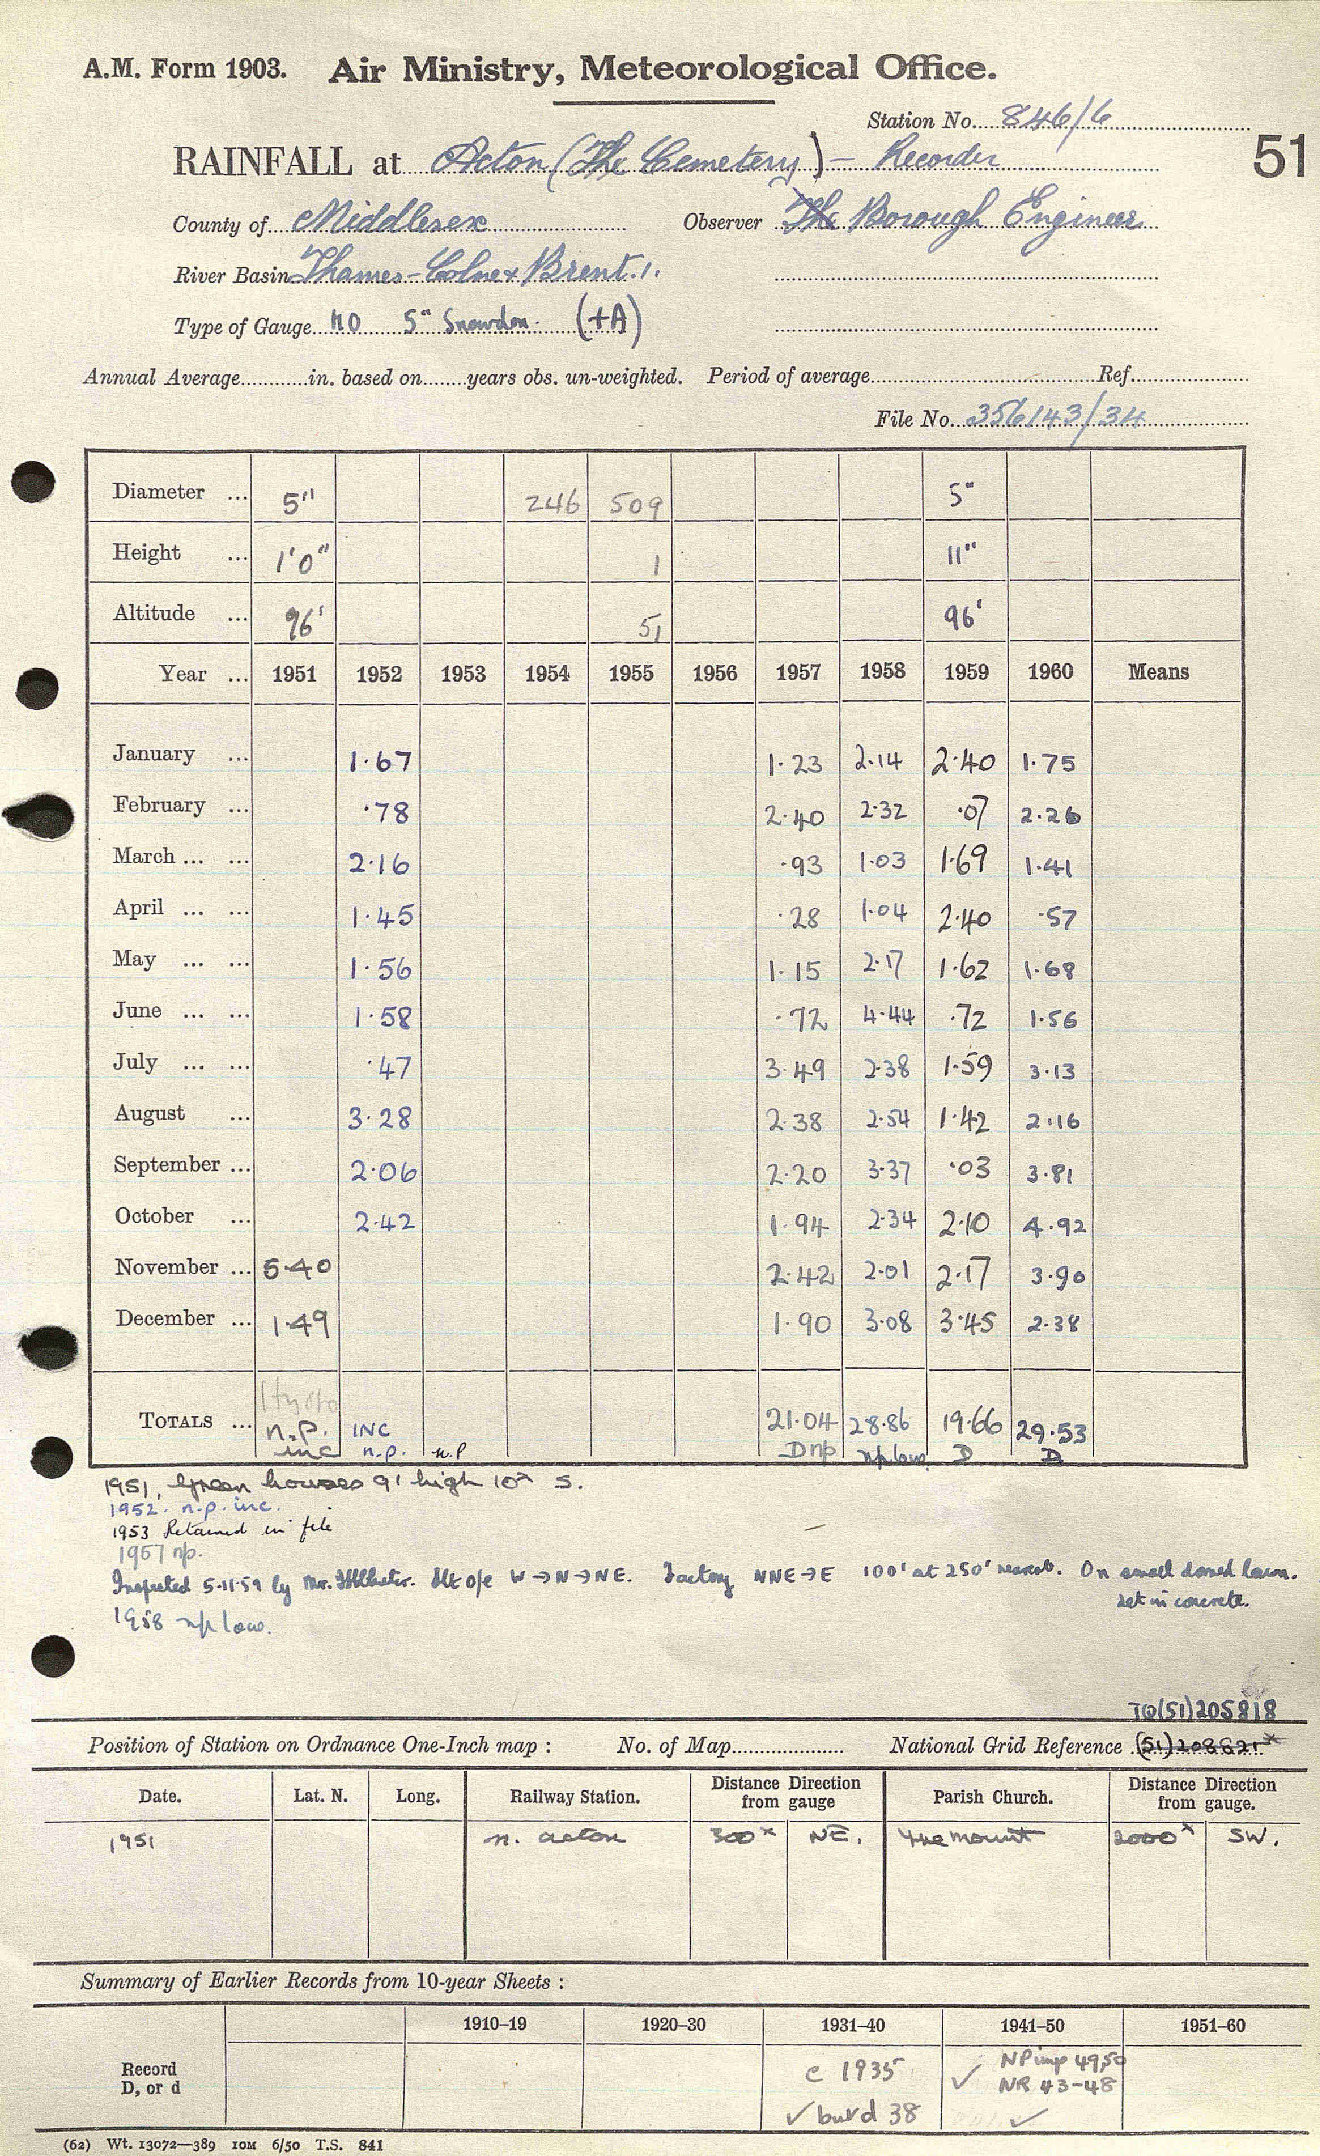 A.M. Form 1903. Air Ministry, Meteorological Office.
Station No. 846/6
51
RAINFALL at Acton (The Cemetery) - Recorder
County of Middlesex Observer The Borough Engineer
River Basin Thames - Colne & Brent. 1.
Type of Gauge MO 5" Snowdon. (+A)
Annual Average in. based on years obs. un-weighted. Period of average Ref.
File No. 356143/34
Diameter ... 5" 246 509 5"
Height ... 1'0" 1 11"
Altitude ... 96' 51 96'
Year ... 1951 1952 1953 1954 1955 1956 1957 1958 1959 1960 Means
January ... 1·67 1·23 2·14 2·40 1·75
February ... ·78 2·40 2·32 ·07 2·26
March ... ... 2·16 ·93 1·03 1·69 1·41
April ... ... 1·45 ·28 1·04 2·40 ·57
May ... ... 1·56 1·15 2·17 1·62 1·68
June ... ... 1·58 ·72 4·44 ·72 1·56
July ... ... ·47 3·49 2·38 1·59 3·13
August ... 3·28 2·38 2·54 1·42 2·16
September ... 2·06 2·20 3·37 ·03 3·81
October ... 2·42 1·94 2·34 2·10 4·92
November ... 5·40 2·42 2·01 2·17 3·90
December ... 1·49 1·90 3·08 3·45 2·38
TOTALS ... n.p. INC 21·04 28·86 19·66 29·53
inc n.p. n.P D np np low D D
1951, Green houses 9' high 10x S.
1952. n.p. inc.
1953 Retained in file
1957 np.
Inspected 5·11·59 by Mr. Ht o/e W→N→NE. Factory NNE→E 100' at 250' nearest. On small domed lawn.
set in concrete.
1958 np low.
TQ(51)205818
Position of Station on Ordnance One-Inch map : No. of Map National Grid Reference (51)208821x
Date. Lat. N. Long. Railway Station. Distance Direction from gauge Parish Church. Distance Direction from gauge.
1951 N. Acton 300x NE. The Mount 2000x SW.
Summary of Earlier Records from 10-year Sheets :
1910–19 1920–30 1931–40 1941–50 1951–60
Record D, or d
c 1935 ✓ NP imp 49,50
NR 43-48
✓ but d 38 ✓
(62) Wt. 13072—389 10M 6/50 T.S. 841